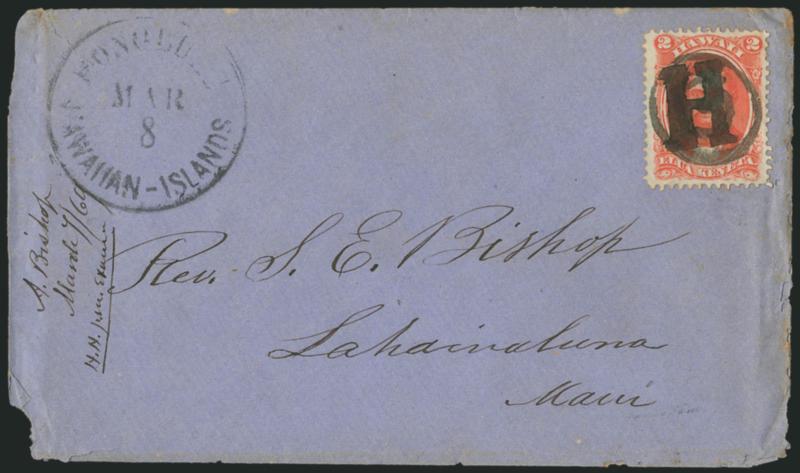 HONOLULU
MAR
8
HAWAIIAN-ISLANDS
2 HAWAII 2
H
ELUA KENETA
Rev. S. E. Bishop
Lahainaluna
Maui
A. Bishop
March 7/69